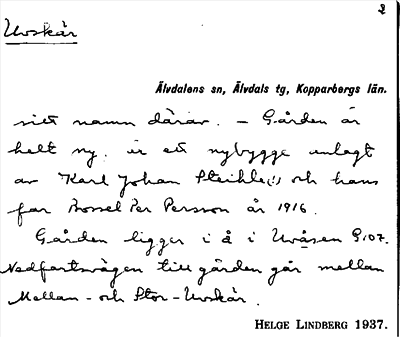 2
Urskär
Älvdalens sn, Älvdals tg, Kopparbergs län.
sitt namn därav. – Gården är
helt ny, är ett nybygge anlagt
av Karl Johan Steihle(!) och hans
far Bossel Per Persson år 1916.
Gården ligger i å i Uvåsen G.107.
Nedfartsvägen till gården går mellan
Mellan- och Stor-Urskär.
HELGE LINDBERG 1937.